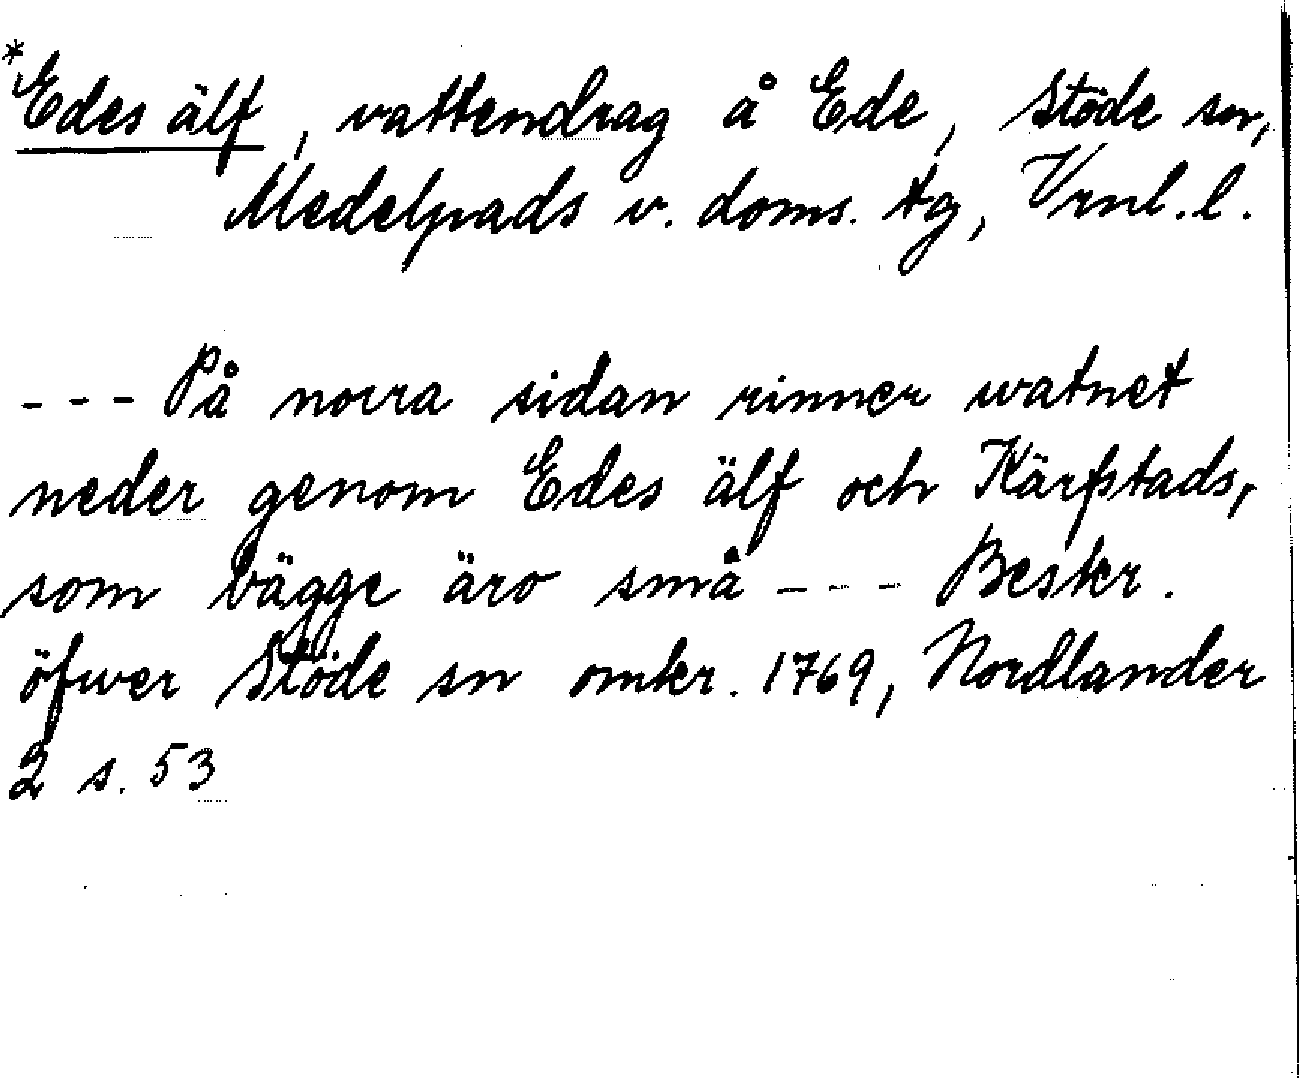 *Edes älf, vattendrag å Ede, Stöde sn,
Medelpads v. doms. tg, Vrnl. l.
--- På norra sidan rinner watnet
neder genom Edes älf och Kärfstads,
som bägge äro små --- Beskr.
öfwer Stöde sn omkr. 1769, Nordlander
2 s. 53